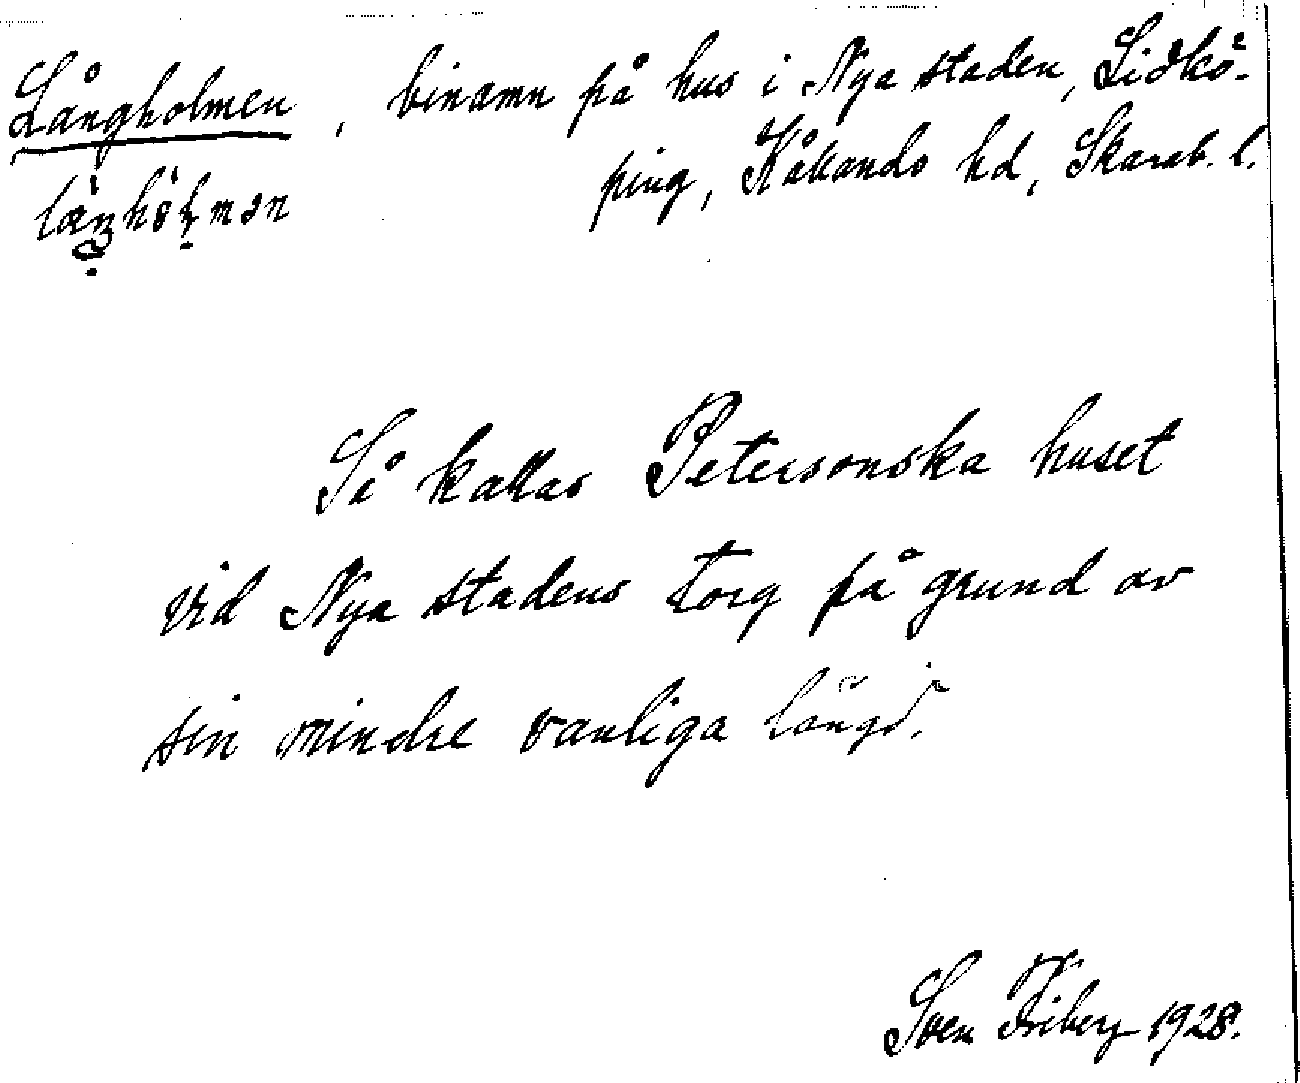 Långholmen, binamn på hus i Nya staden, Lidkö-
ping, Kåkands hd, Skarab. l.
Så kallas Petersonska huset
vid Nya stadens torg på grund av
sin mindre vanliga längd.
Sven Friberg 1928.